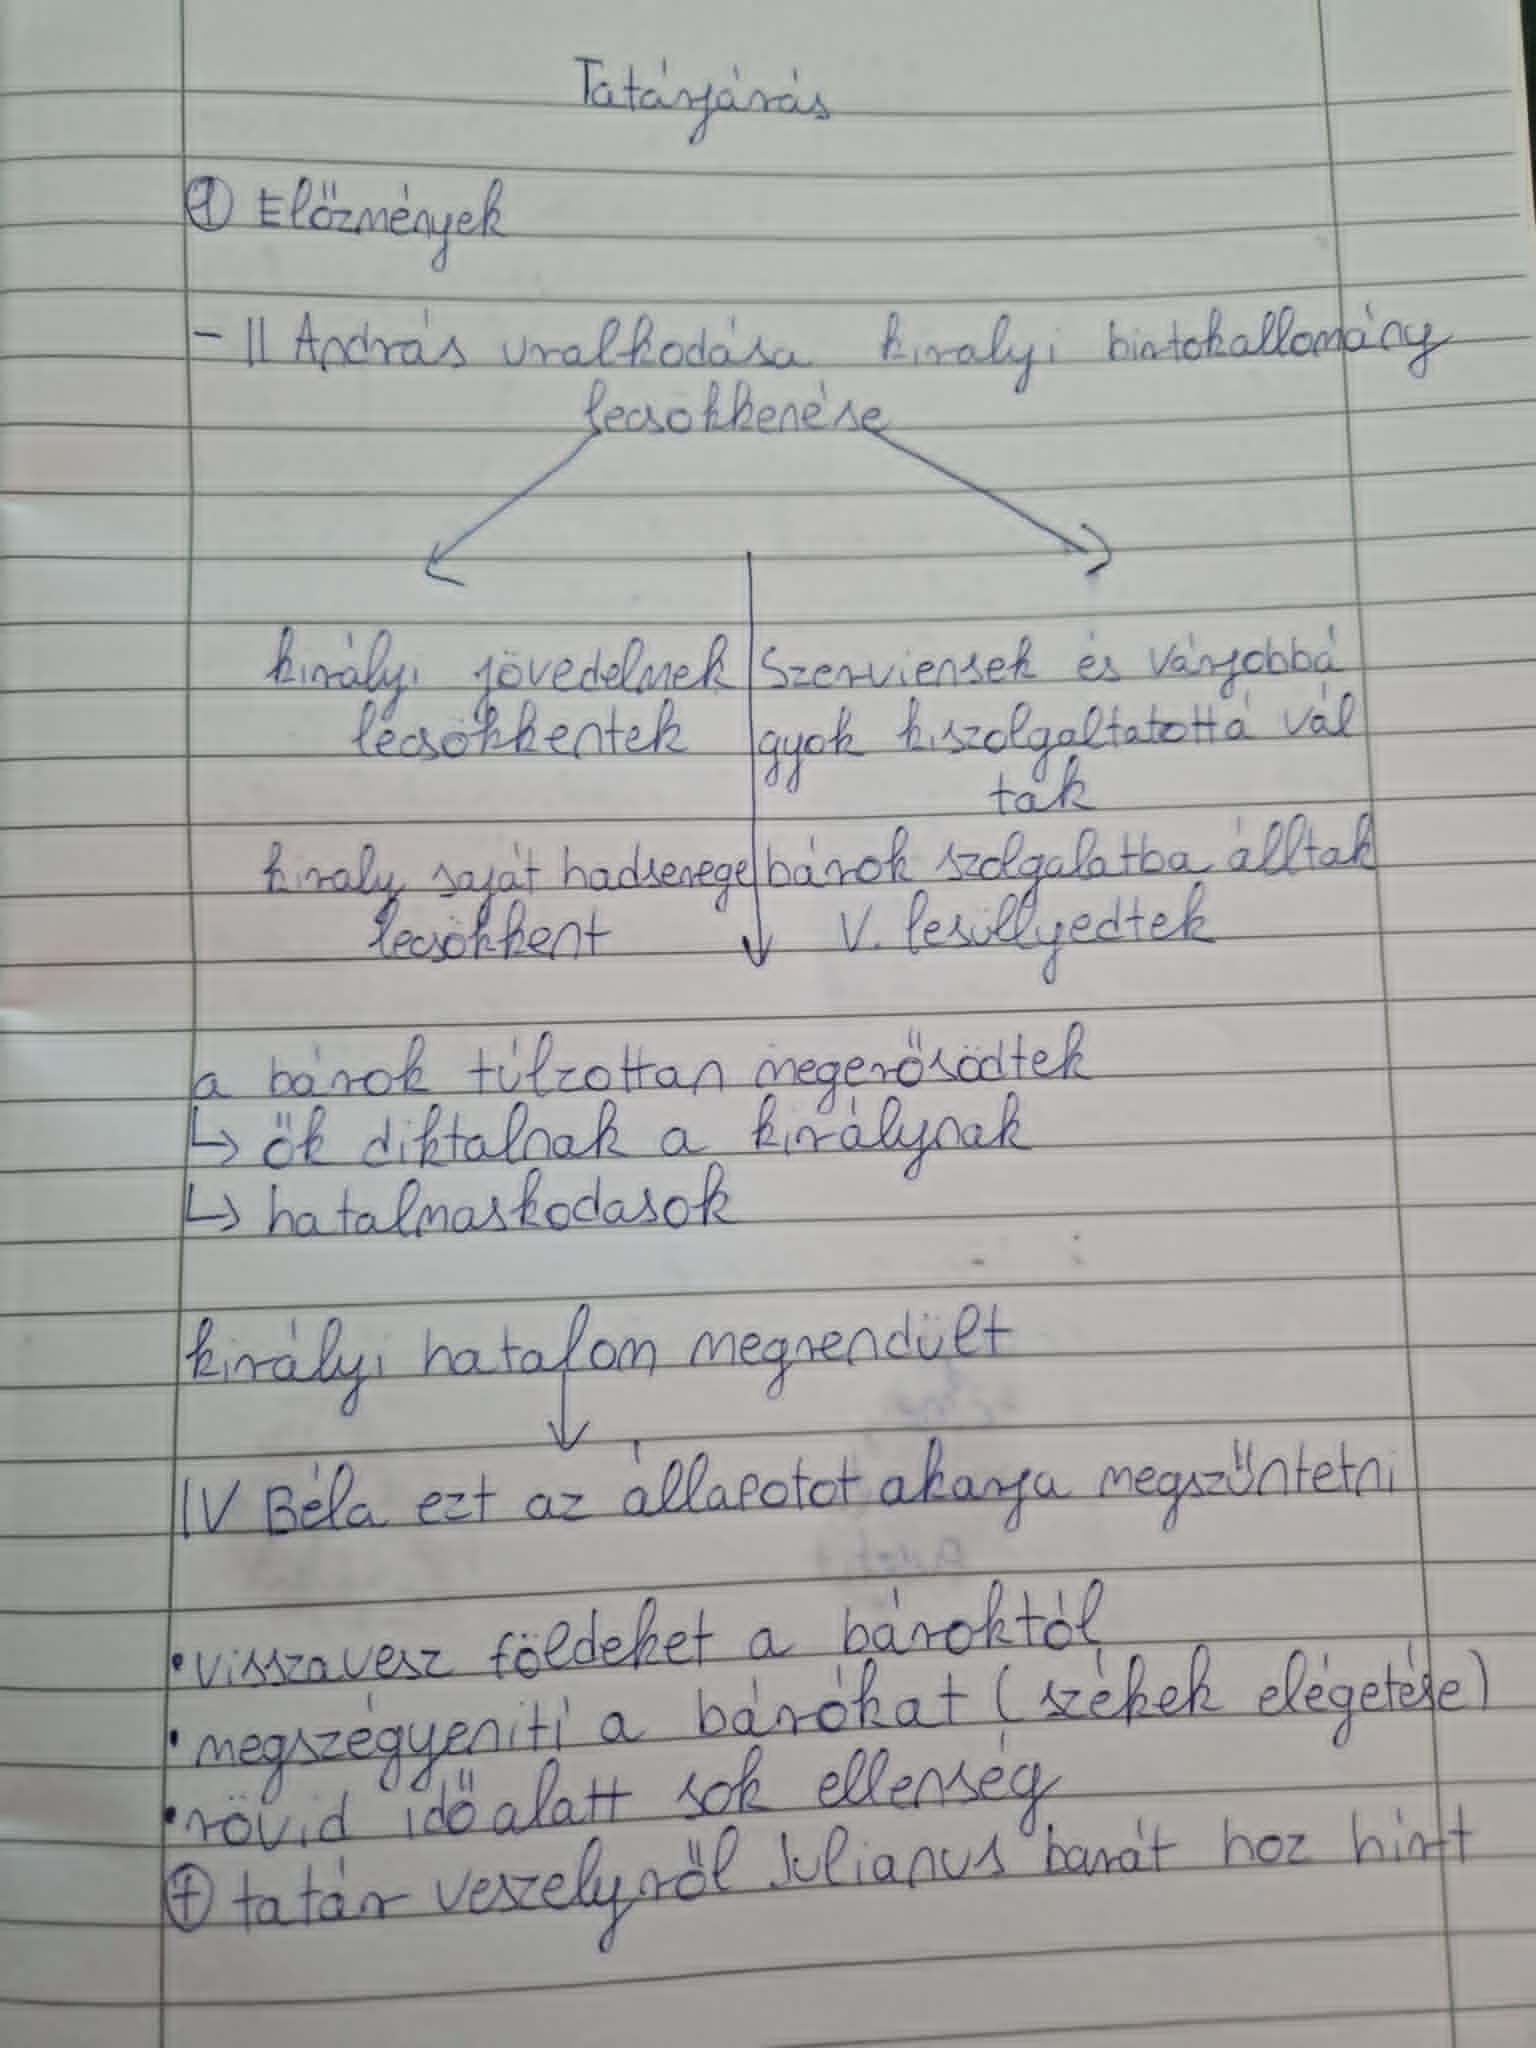 Tatárjárás
① Előzmények
- II András uralkodása kiralyi birtokallomány
lecsökkenése
királyi jövedelmek
lecsökkentek
kiraly saját hadserege
lecsökkent
Szerviensek és várjobbá
gyok kiszolgaltatottá vál
tak
bárok szolgalatba álltak
V. lesüllyedtek
a bárok túlzottan megerősödtek
↳ ők diktalnak a királynak
↳ hatalmaskodasok
királyi hatalom megrendült
↓
IV Béla ezt az állapotot akarja megszűntetni
• visszavesz földeket a bároktól
• megszégyeníti a bárókat (székek elégetése)
• rövid idő alatt sok ellenség
⊕ tatár veszelyről Julianus barát hoz hirt